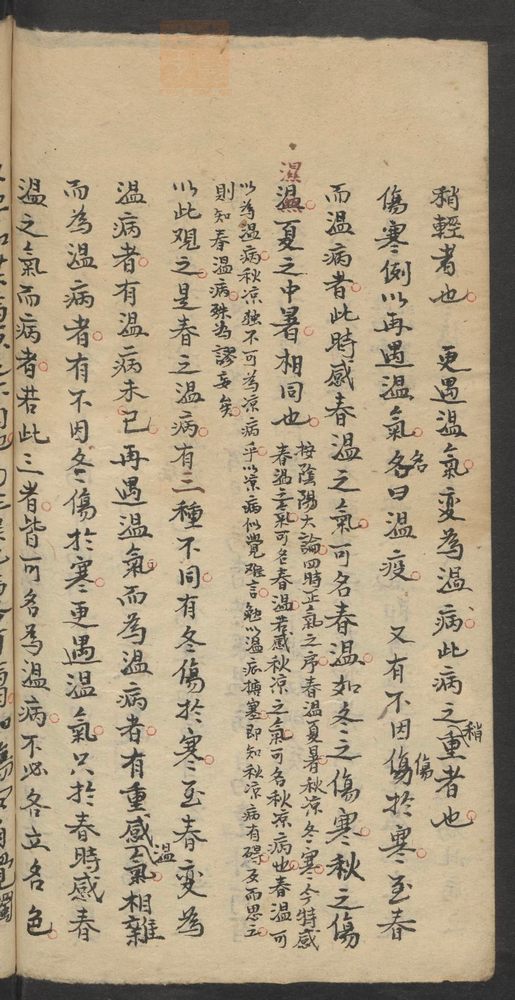 稍輕者也　更遇溫氣變為溫病此病之稍重者也
傷寒例以再遇溫氣名曰溫疫　又有不因傷於寒至春
而溫病者此時感春溫之氣可名春溫如冬之傷寒秋之傷
濕夏之中暑相同也
按陰陽大論四時正氣之序春溫夏暑秋涼冬寒今特感
春溫之氣可名春溫若感秋涼之氣可名秋涼病也春溫可
以為溫病秋涼獨不可為涼病乎以涼病似覺難言勉以溫病搪塞即知秋涼病有碍反而思之
則知春溫病殊為謬妄矣
以此觀之是春之溫病有三種不同有冬傷於寒至春變為
溫病者有溫病未已再遇溫氣而為溫病者有重感溫氣相雜
而為溫病者有不因冬傷於寒更遇溫氣只於春時感春
溫之氣而病者若此三者皆可名為溫病不必各立名色